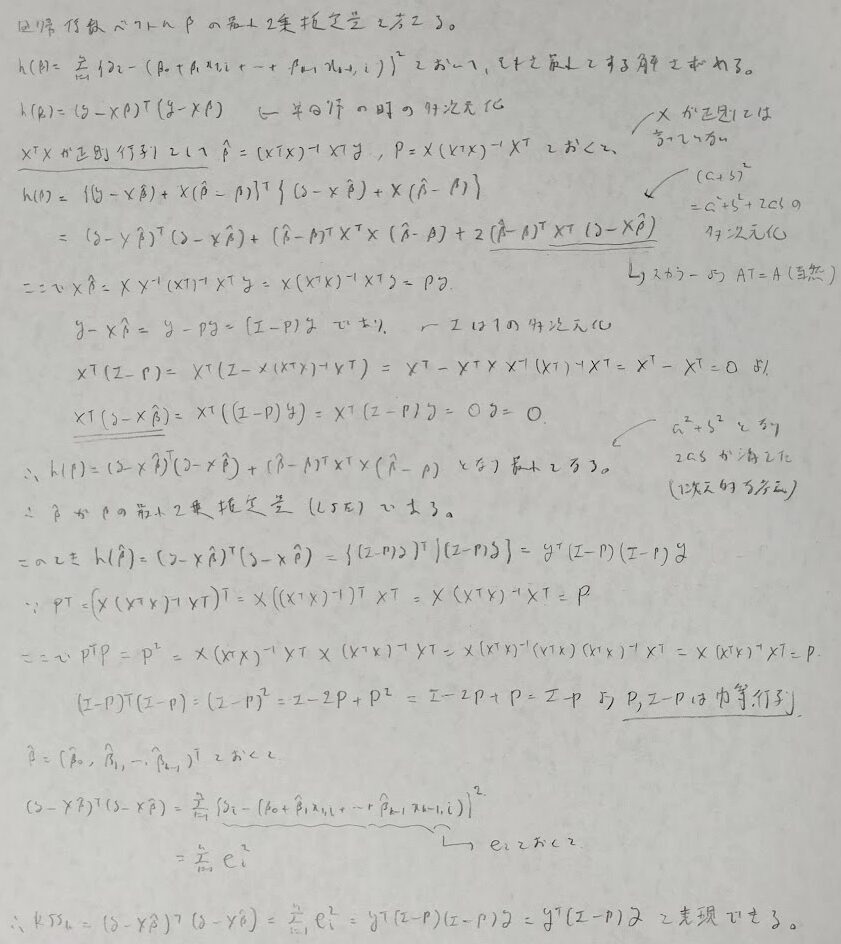 回帰係数ベクトル β の最小2乗推定量を考える。
h(β) = Σ_{i=1}^{n} {y_i − (β_0 + β_1 x_{1,i} + … + β_{k-1} x_{k-1,i})}^2 とおいて、それを最小とする解を求める。
h(β) = (y − Xβ)^T (y − Xβ) ← 単回帰の時の多次元化
X が正則とは
言っていない
X^T X が正則行列として β̂ = (X^T X)^{-1} X^T y, P = X (X^T X)^{-1} X^T とおくと、
h(β) = {(y − Xβ̂) + X(β̂ − β)}^T {(y − Xβ̂) + X(β̂ − β)}
(a+b)^2
= a^2 + b^2 + 2ab の
多次元化
= (y − Xβ̂)^T (y − Xβ̂) + (β̂ − β)^T X^T X (β̂ − β) + 2(β̂ − β)^T X^T (y − Xβ̂)
↳ スカラーより A^T = A (当然)
ここで Xβ̂ = X X^{-1} (X^T)^{-1} X^T y = X (X^T X)^{-1} X^T y = Py.
y − Xβ̂ = y − Py = (I − P)y であり, ← I は 1 の多次元化
X^T (I − P) = X^T (I − X (X^T X)^{-1} X^T) = X^T − X^T X X^{-1} (X^T)^{-1} X^T = X^T − X^T = 0 より,
X^T (y − Xβ̂) = X^T ((I − P)y) = X^T (I − P)y = 0y = 0.
a^2 + b^2 となり
2ab が消えた
∴ h(β) = (y − Xβ̂)^T (y − Xβ̂) + (β̂ − β)^T X^T X (β̂ − β) となり最小となる。
∴ β̂ が β の最小2乗推定量 (LSE) である。
このとき h(β̂) = (y − Xβ̂)^T (y − Xβ̂) = {(I−P)y}^T {(I−P)y} = y^T (I−P)(I−P)y
∵ P^T = (X (X^T X)^{-1} X^T)^T = X ((X^T X)^{-1})^T X^T = X (X^T X)^{-1} X^T = P
ここで P^T P = P^2 = X (X^T X)^{-1} X^T X (X^T X)^{-1} X^T = X (X^T X)^{-1} (X^T X) (X^T X)^{-1} X^T = X (X^T X)^{-1} X^T = P.
(I−P)^T (I−P) = (I−P)^2 = I − 2P + P^2 = I − 2P + P = I − P より P, I−P は巾等行列.
β̂ = (β̂_0, β̂_1, …, β̂_{k-1})^T とおくと
(y − Xβ̂)^T (y − Xβ̂) = Σ_{i=1}^{n} {y_i − (β̂_0 + β̂_1 x_{1,i} + … + β̂_{k-1} x_{k-1,i})}^2
↳ e_i とおくと
= Σ_{i=1}^{n} e_i^2
∴ RSS_k = (y − Xβ̂)^T (y − Xβ̂) = Σ_{i=1}^{n} e_i^2 = y^T (I−P)(I−P)y = y^T (I−P)y と表現できる。